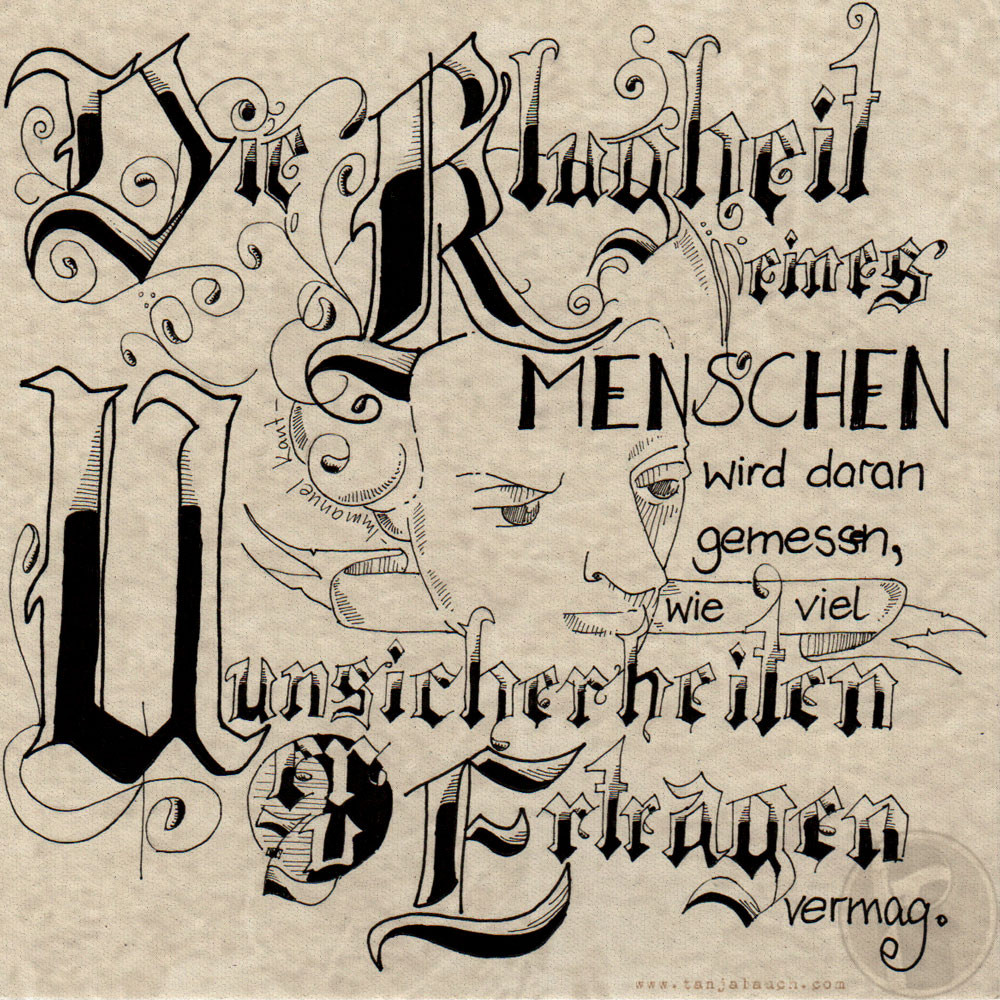 Die Klugheit
eines
MENSCHEN
wird daran
gemessen,
wie viel
Uunsicherheiten
Ertragen
vermag.
Immanuel Kant-
www.tanjabauch.com